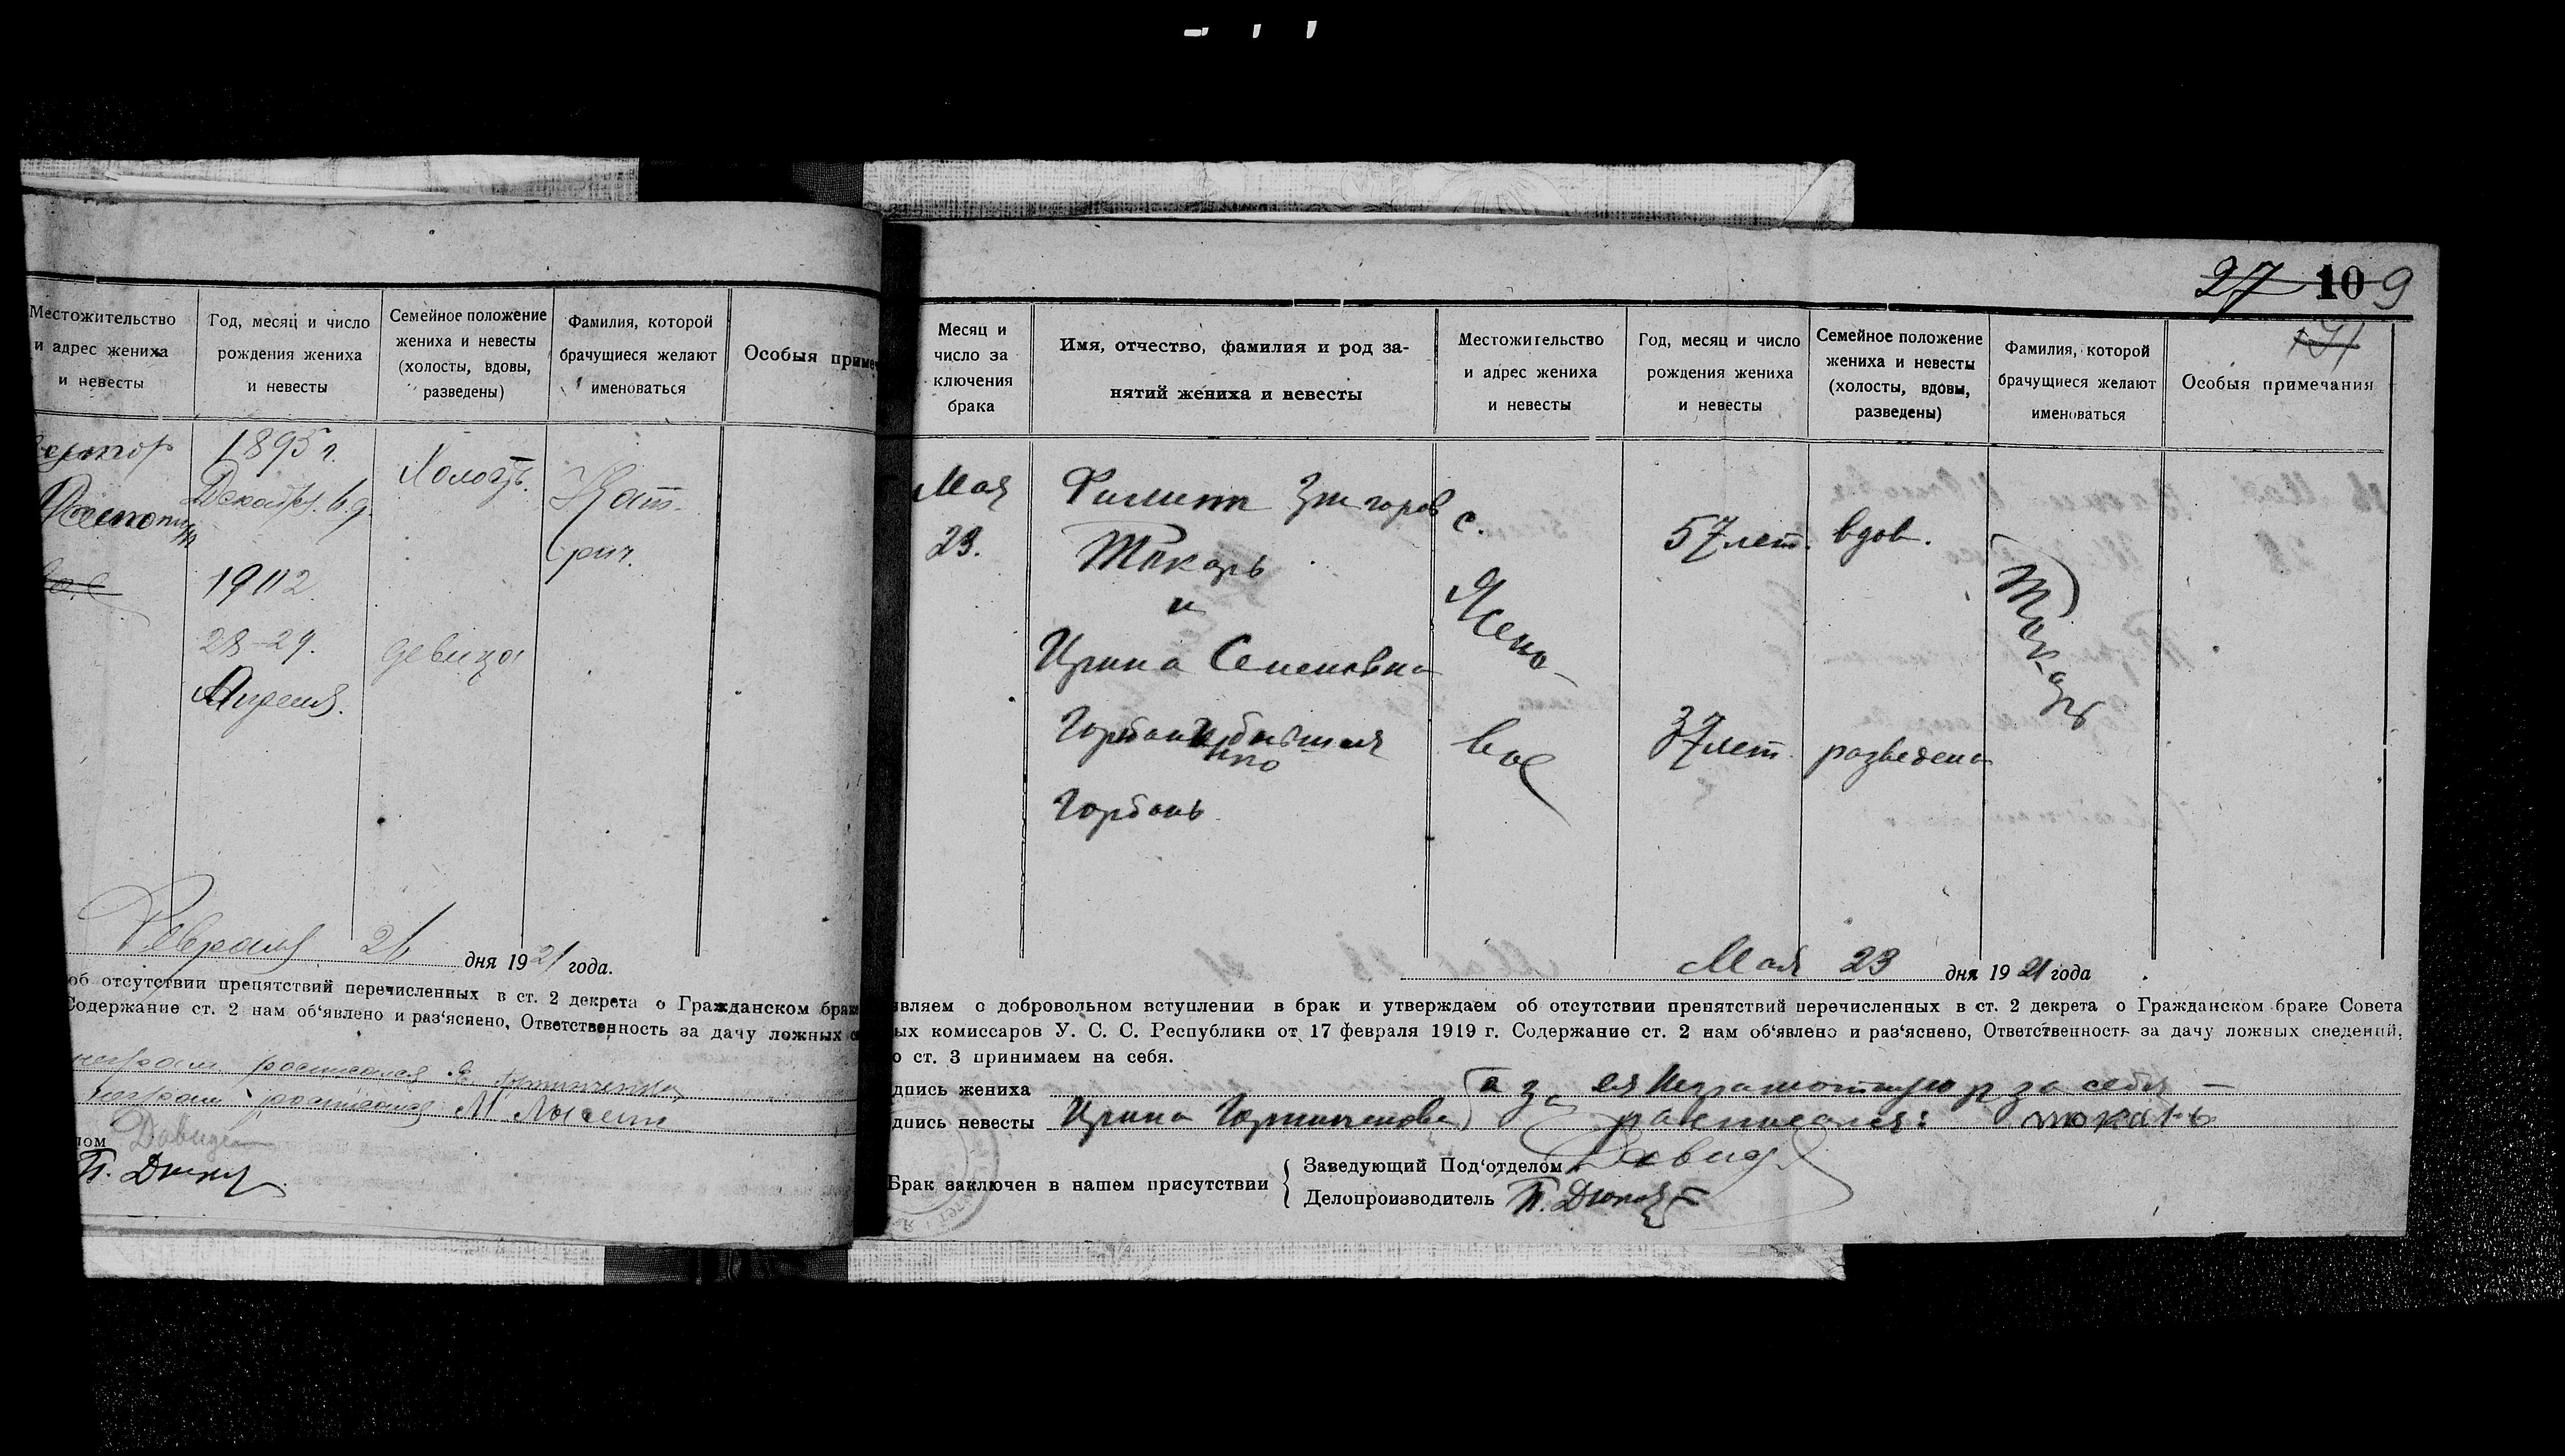 Местожительство
и адрес жениха
и невесты
Год, месяц и число
рождения жениха
и невесты
Семейное положение
жениха и невесты
(холосты, вдовы,
разведены)
Фамилия, которой
брачущиеся желают
именоваться
Особыя приме
1895 г.
Декабр. 6 д.
Холост.
1902
28-29.
Апреля.
девица
Февраля 26 дня 1921 года.
об отсутствии препятствий перечисленных в ст. 2 декрета о Гражданском браке
Содержание ст. 2 нам об‘явлено и раз‘яснено, Ответственность за дачу ложных с
росписался
М
лом Давиде
П. Дюк
27 10 9
Месяц и
число за
ключения
брака
Имя, отчество, фамилия и род за-
нятий жениха и невесты
Местожительство
и адрес жениха
и невесты
Год, месяц и число
рождения жениха
и невесты
Семейное положение
жениха и невесты
(холосты, вдовы,
разведены)
Фамилия, которой
брачущиеся желают
именоваться
Особыя примечания
Мая
23.
Филипп Григоров
Токарь
и
Ирина Семеновна
бывшая
Горбань
с.
Ясено-
вое
57 лет.
37 лет.
вдов.
разведена
Токарь
Мая 23 дня 1921 года
являем о добровольном вступлении в брак и утверждаем об отсутствии препятствий перечисленных в ст. 2 декрета о Гражданском браке Совета
ых комиссаров У. С. С. Республики от 17 февраля 1919 г. Содержание ст. 2 нам об‘явлено и раз‘яснено, Ответственность за дачу ложных сведений,
о ст. 3 принимаем на себя.
дпись жениха а за ея неграмотную и за себя
дпись невесты Ирина росписался: токарь
Брак заключен в нашем присутствии
Заведующий Под‘отделом Давид
Делопроизводитель П. Дюк